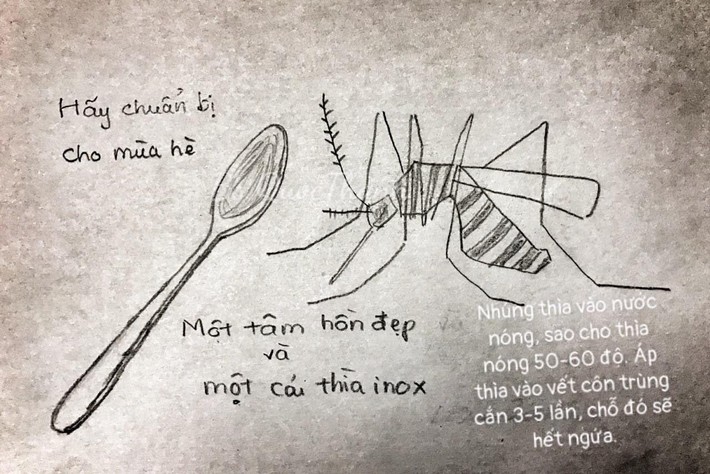 Hãy chuẩn bị
cho mùa hè
Một tâm hồn đẹp
và
một cái thìa inox
Nhúng thìa vào nước
nóng, sao cho thìa
nóng 50-60 độ. Áp
thìa vào vết côn trùng
cắn 3-5 lần, chỗ đó sẽ
hết ngứa.